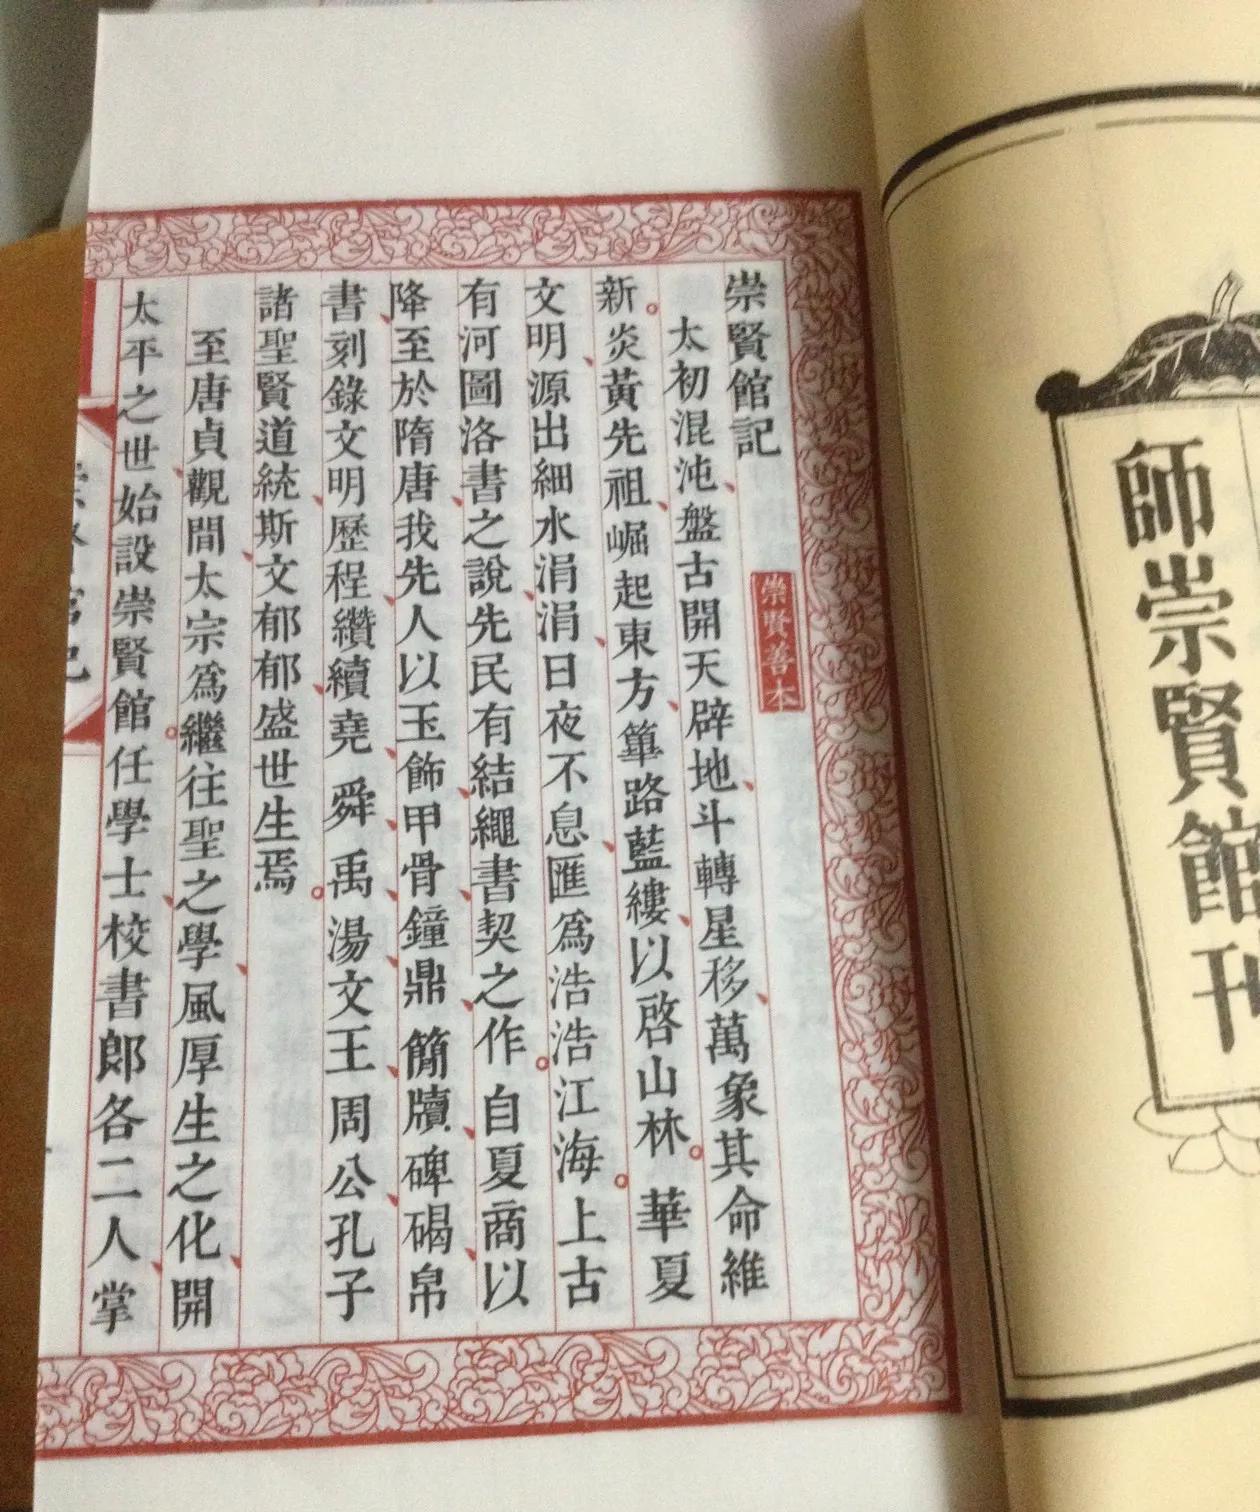 師崇賢館刊
崇賢善本
崇賢館記
太初混沌、盤古開天辟地、斗轉星移、萬象其命維
新。炎黃先祖、崛起東方、篳路藍縷、以啓山林。華夏
文明、源出細水涓涓、日夜不息、匯爲浩浩江海。上古
有河圖洛書之說、先民有結繩書契之作。自夏商以
降至於隋唐、我先人以玉飾、甲骨、鐘鼎、簡牘、碑碣、帛
書、刻錄文明歷程、纘續堯、舜、禹、湯、文王、周公、孔子
諸聖賢道統、斯文郁郁、盛世生焉。
至唐貞觀間、太宗爲繼往聖之學、風厚生之化、開
太平之世、始設崇賢館。任學士、校書郎各二人、掌